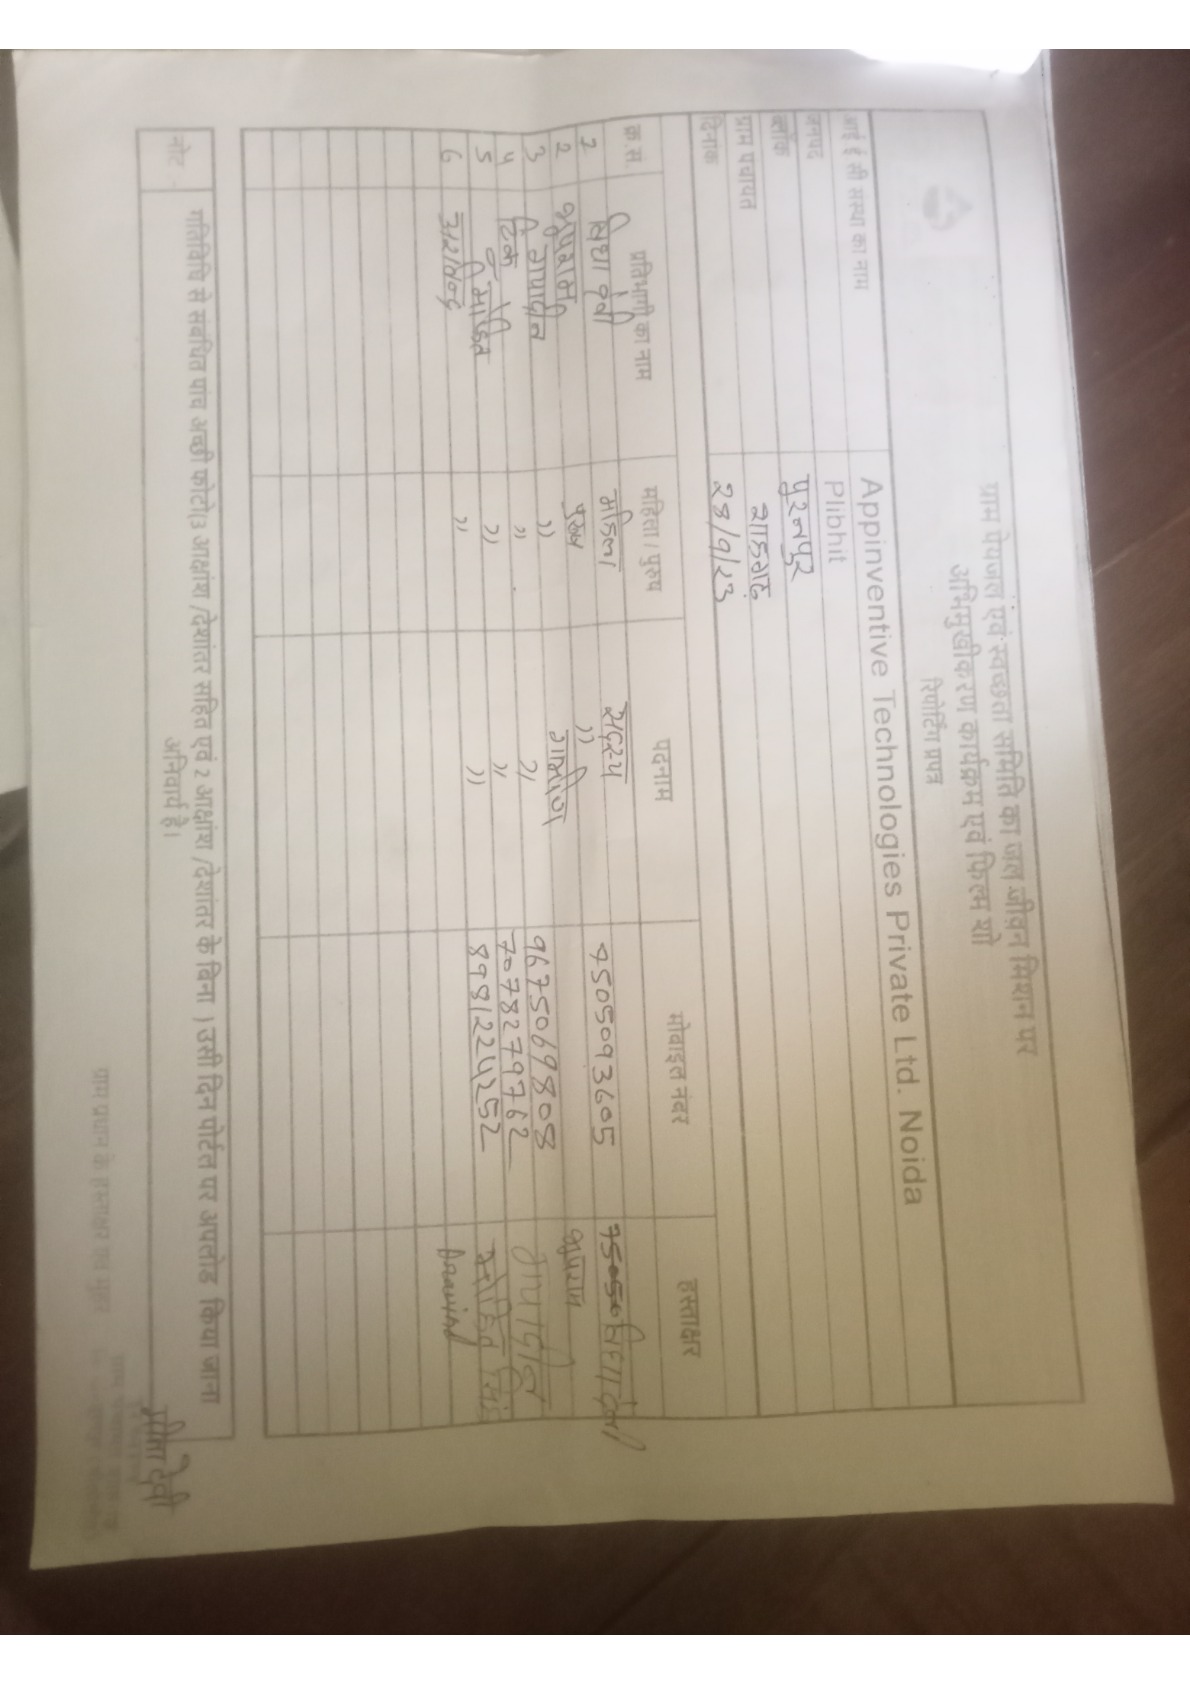 ग्राम पेयजल एवं स्वच्छता समिति का जल जीवन मिशन पर
अभिमुखीकरण कार्यक्रम एवं फिल्म शो
रिपोर्टिंग प्रपत्र
आई ई सी संस्था का नाम Appinventive Technologies Private Ltd. Noida
जनपद Plibhit
ब्लॉक पुरनपुर
ग्राम पंचायत शाहगढ
दिनांक २8/9/२3
क्र.सं. प्रतिभागी का नाम महिला / पुरुष पदनाम मोबाइल नंबर हस्ताक्षर
1 देवी महिला सदस्य 9505093605
2 भुपराम पुरुष )) भुपराम
3 )) ग्रामीण 9675069808
4 )) )) 7078279762
5 )) )) 8981224252
6 अरविन्द )) )) Aravind
नोट गतिविधि से संबंधित पांच अच्छी फोटो(3 आक्षांश /देशांतर सहित एवं 2 आक्षांश /देशांतर के बिना ) उसी दिन पोर्टल पर अपलोड किया जाना
अनिवार्य है।
ग्राम प्रधान के हस्ताक्षर एवं मुहर
देवी